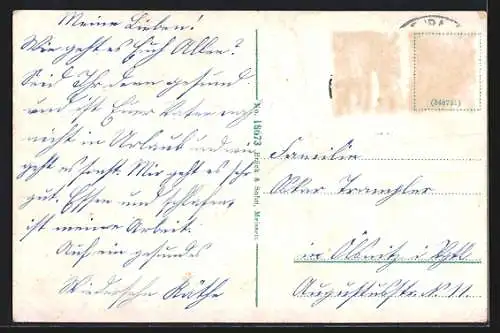 Meine Lieben!
Wie geht es Euch Allen?
Seid Ihr denn gesund
und ist Euer Vater noch
nicht in Urlaub und wie
geht es sonst. Mir geht es sehr
gut. Essen und schlafen,
ist meine Arbeit.
Auf ein gesundes
Wiedersehn Käthe
No. 18673 Brück & Sohn, Meissen.
(348751)
Familie
Oskar Trampler
in Ölsnitz i. Vgtl.
Augustusstr. N 11.